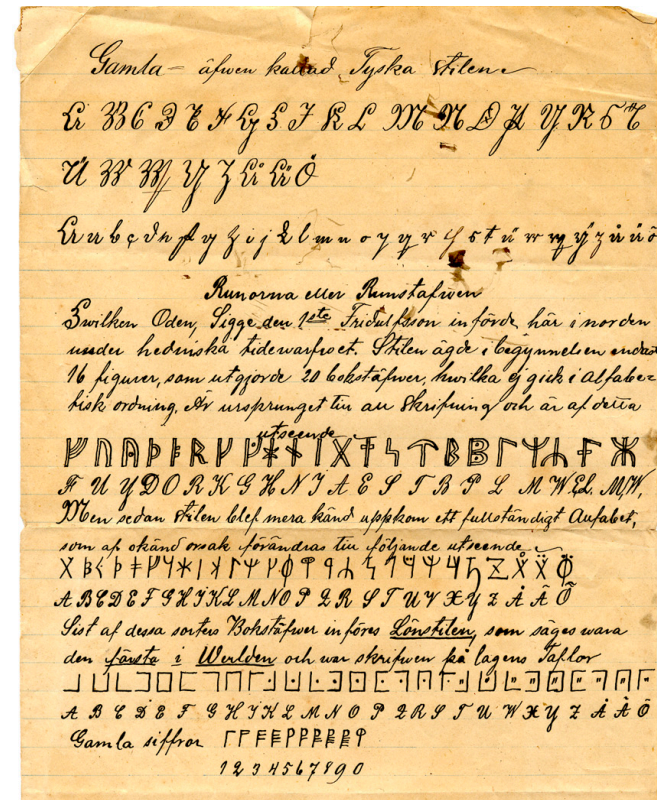 Gamla — äfwen kallad Tyska stilen
A B C D E F G H I J K L M N O P Q R S T
U V W X Y Z Å Ä Ö
A a b c d e f g h i j k l m n o p q r s t u v w x y z å ä ö
Runorna eller Runstafwen
Hwilken Oden, Sigge den 1ste Fridulfsson införde, här i norden
under hedniska tidewarfwet. Stilen ägde i begynnelsen endast
16 figurer, som utgjorde 20 bokstäfwer, hwilka ej gick i alfabe=
tisk ordning, Är ursprunget till all Skrifning och är af detta
utseende
F U Y D O R K G H N I A E S T B P L M W EL. M/W,
Men sedan stilen blef mera känd uppkom ett fullständigt Aufabet,
som af okänd orsak förändras till följande utseende
A B C D E F G H I J K L M N O P Q R S T U V X Y Z Å Ä Ö
Sist af dessa sorters Bokstäfwer införes Lönstilen, som säges wara
den första i Werlden och war skrifwen på lagens Taflor
A B C D E F G H I J K L M N O P Q R S T U W X Y Z Å Ä Ö
Gamla siffror
1 2 3 4 5 6 7 8 9 0